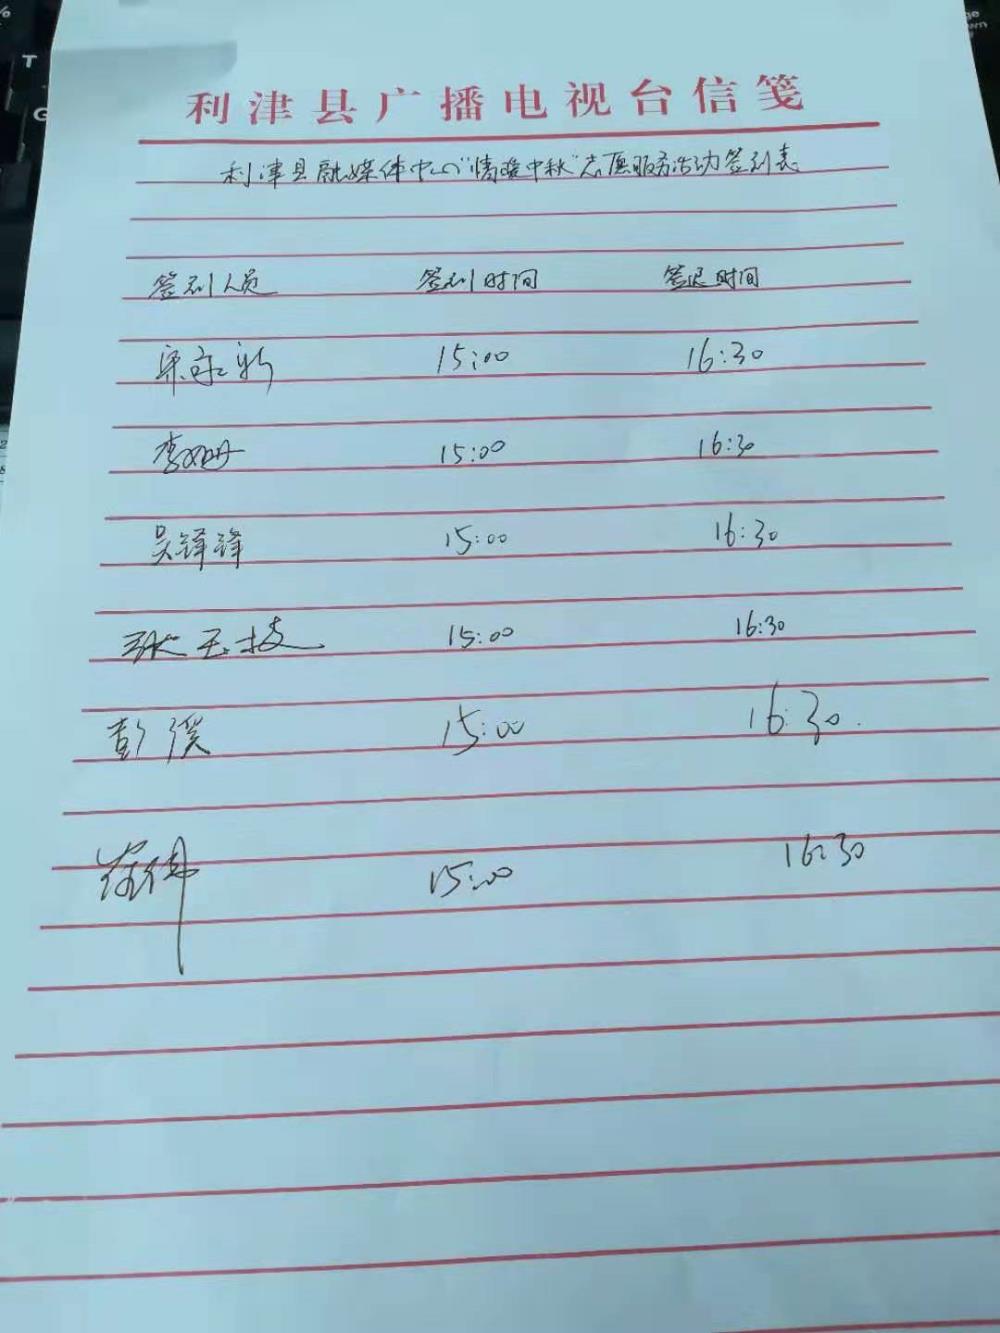 利津县广播电视台信笺
利津县融媒体中心"情暖中秋"志愿服务活动签到表
签到人员 签到时间 签退时间
梁永新 15:00 16:30
李 15:00 16:30
吴铎锋 15:00 16:30
张玉枝 15:00 16:30
彭溪 15:00 16:30.
15:00 16:30